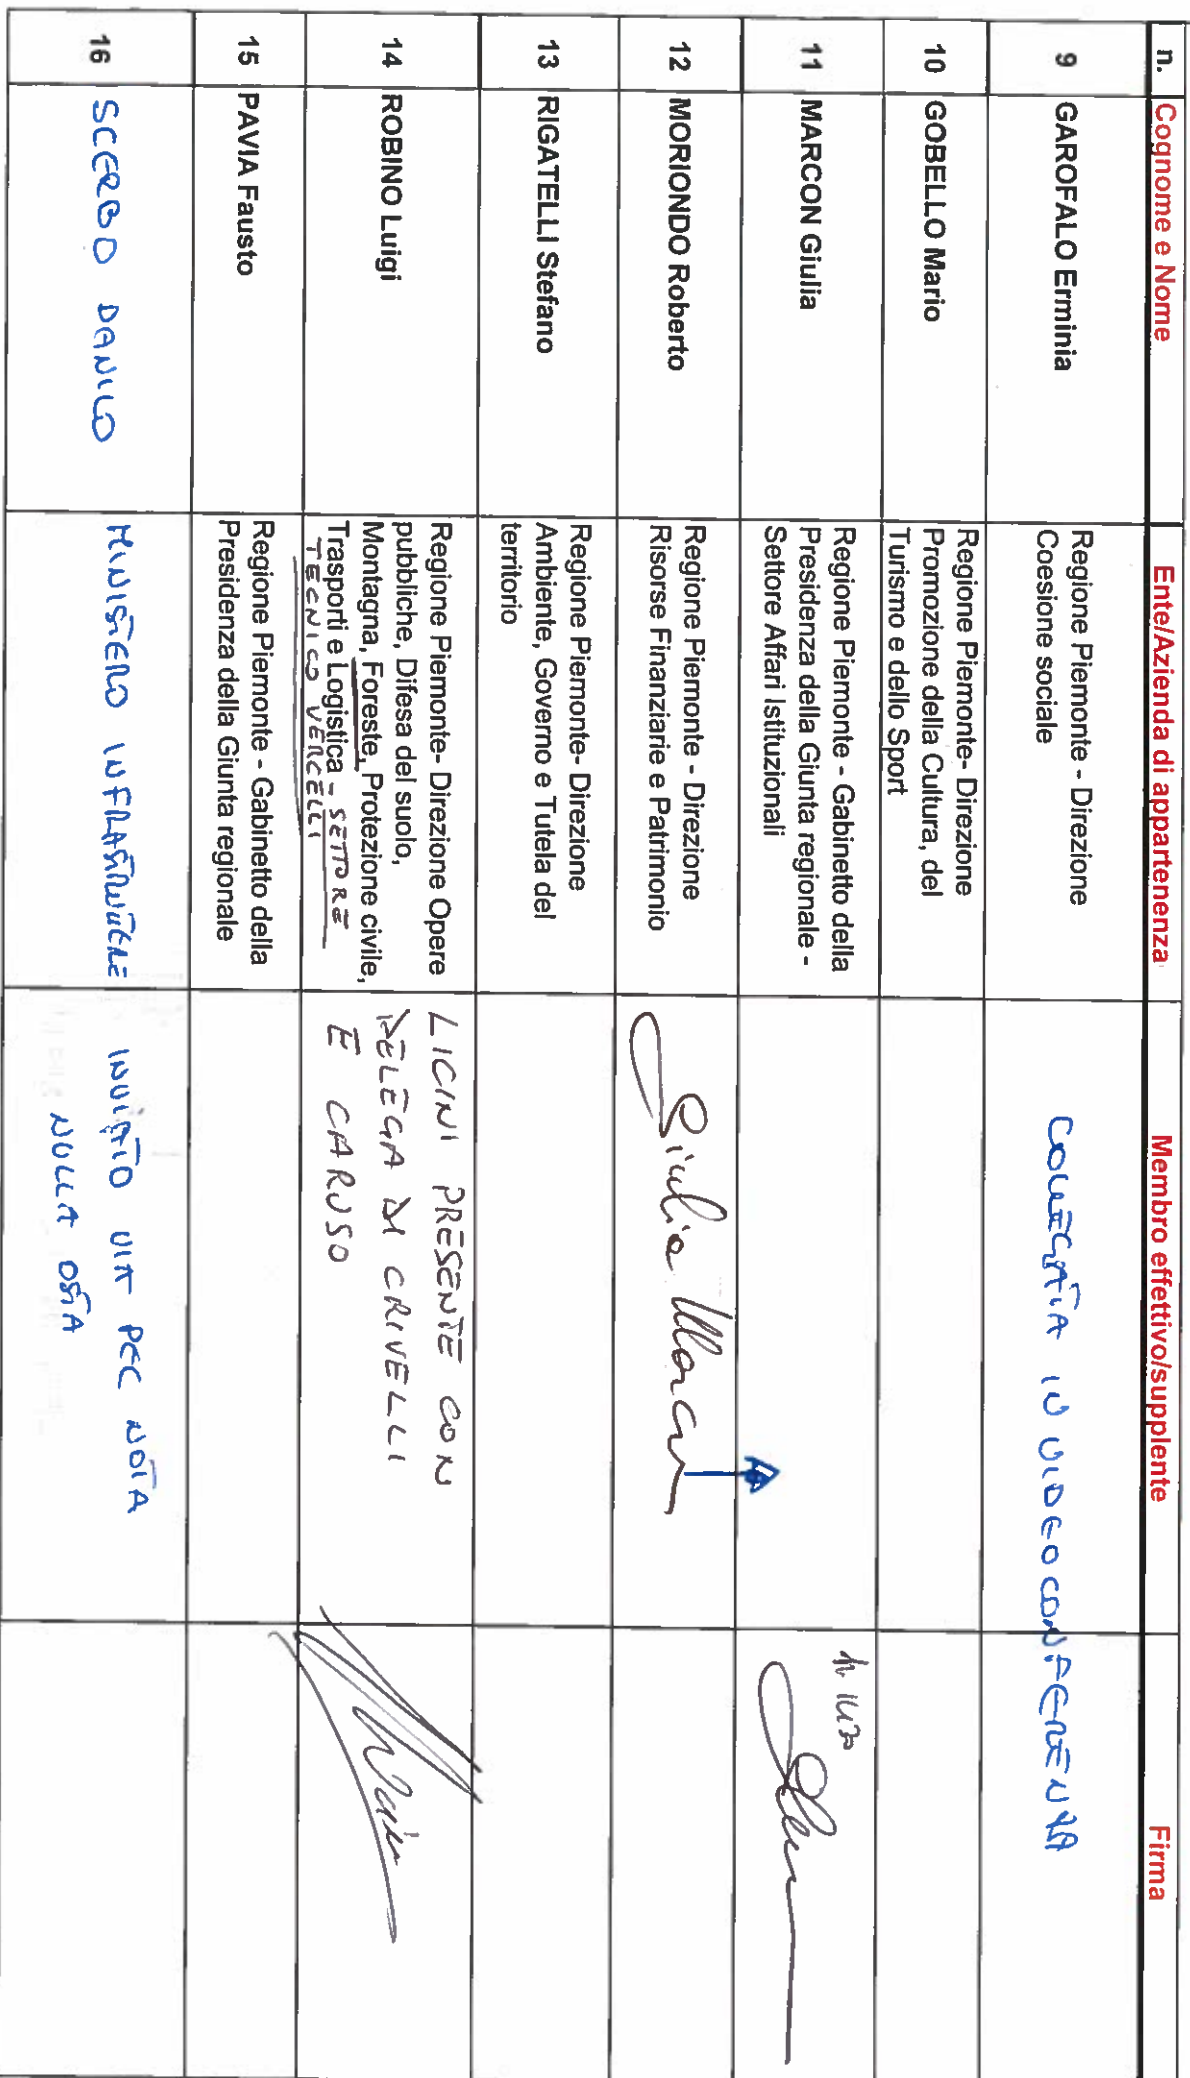 n. Cognome e Nome Ente/Azienda di appartenenza Membro effettivo/supplente Firma
9 GAROFALO Erminia Regione Piemonte - Direzione
Coesione sociale
COLLEGATA IN VIDEOCONFERENZA
10 GOBELLO Mario Regione Piemonte- Direzione
Promozione della Cultura, del
Turismo e dello Sport
11 MARCON Giulia Regione Piemonte - Gabinetto della
Presidenza della Giunta regionale -
Settore Affari Istituzionali
12 MORIONDO Roberto Regione Piemonte - Direzione
Risorse Finanziarie e Patrimonio
Giulia Marcon
13 RIGATELLI Stefano Regione Piemonte- Direzione
Ambiente, Governo e Tutela del
territorio
14 ROBINO Luigi Regione Piemonte- Direzione Opere
pubbliche, Difesa del suolo,
Montagna, Foreste, Protezione civile,
Trasporti e Logistica - SETTORE
TECNICO VERCELLI
LICINI PRESENTE CON
DELEGA DI CRIVELLI
E CARUSO
15 PAVIA Fausto Regione Piemonte - Gabinetto della
Presidenza della Giunta regionale
16 SCERBO DANILO MINISTERO INFRASTRUTTURE
INVIATO VIA PEC NOTA
NULLA OSTA